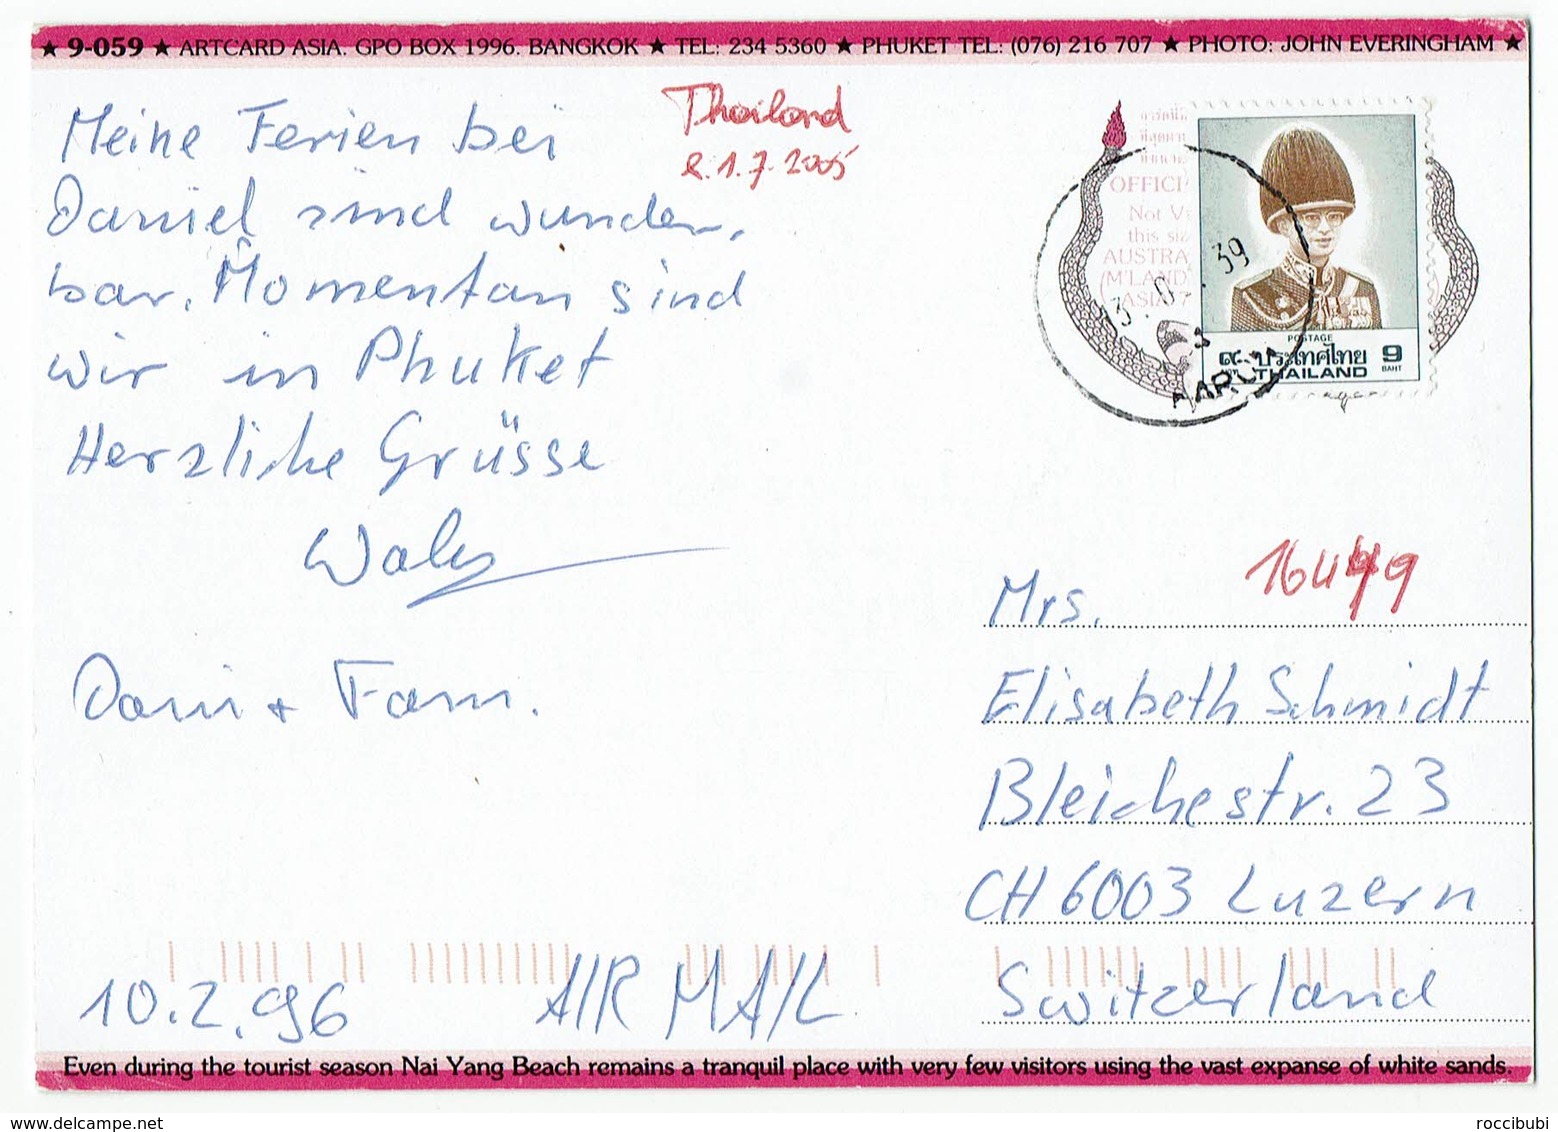 ★ 9-059 ★ ARTCARD ASIA. GPO BOX 1996. BANGKOK ★ TEL: 234 5360 ★ PHUKET TEL: (076) 216 707 ★ PHOTO: JOHN EVERINGHAM ★
Thailand
1.7.2005
Meine Ferien bei
Daniel sind wunder,
bar. Momentan sind
wir in Phuket
Herzliche Grüsse
Dani + Fam.
10.2.96
AIR MAIL
OFFICI
Not V
this siz
AUSTRA
(M'LAND
ASIA 7
39
POSTAGE
๙ ประเทศไทย 9
THAILAND BAHT
Mrs.
Elisabeth Schmidt
Bleichestr. 23
CH 6003 Luzern
Switzerland
Even during the tourist season Nai Yang Beach remains a tranquil place with very few visitors using the vast expanse of white sands.
www.delcampe.net
roccibubi